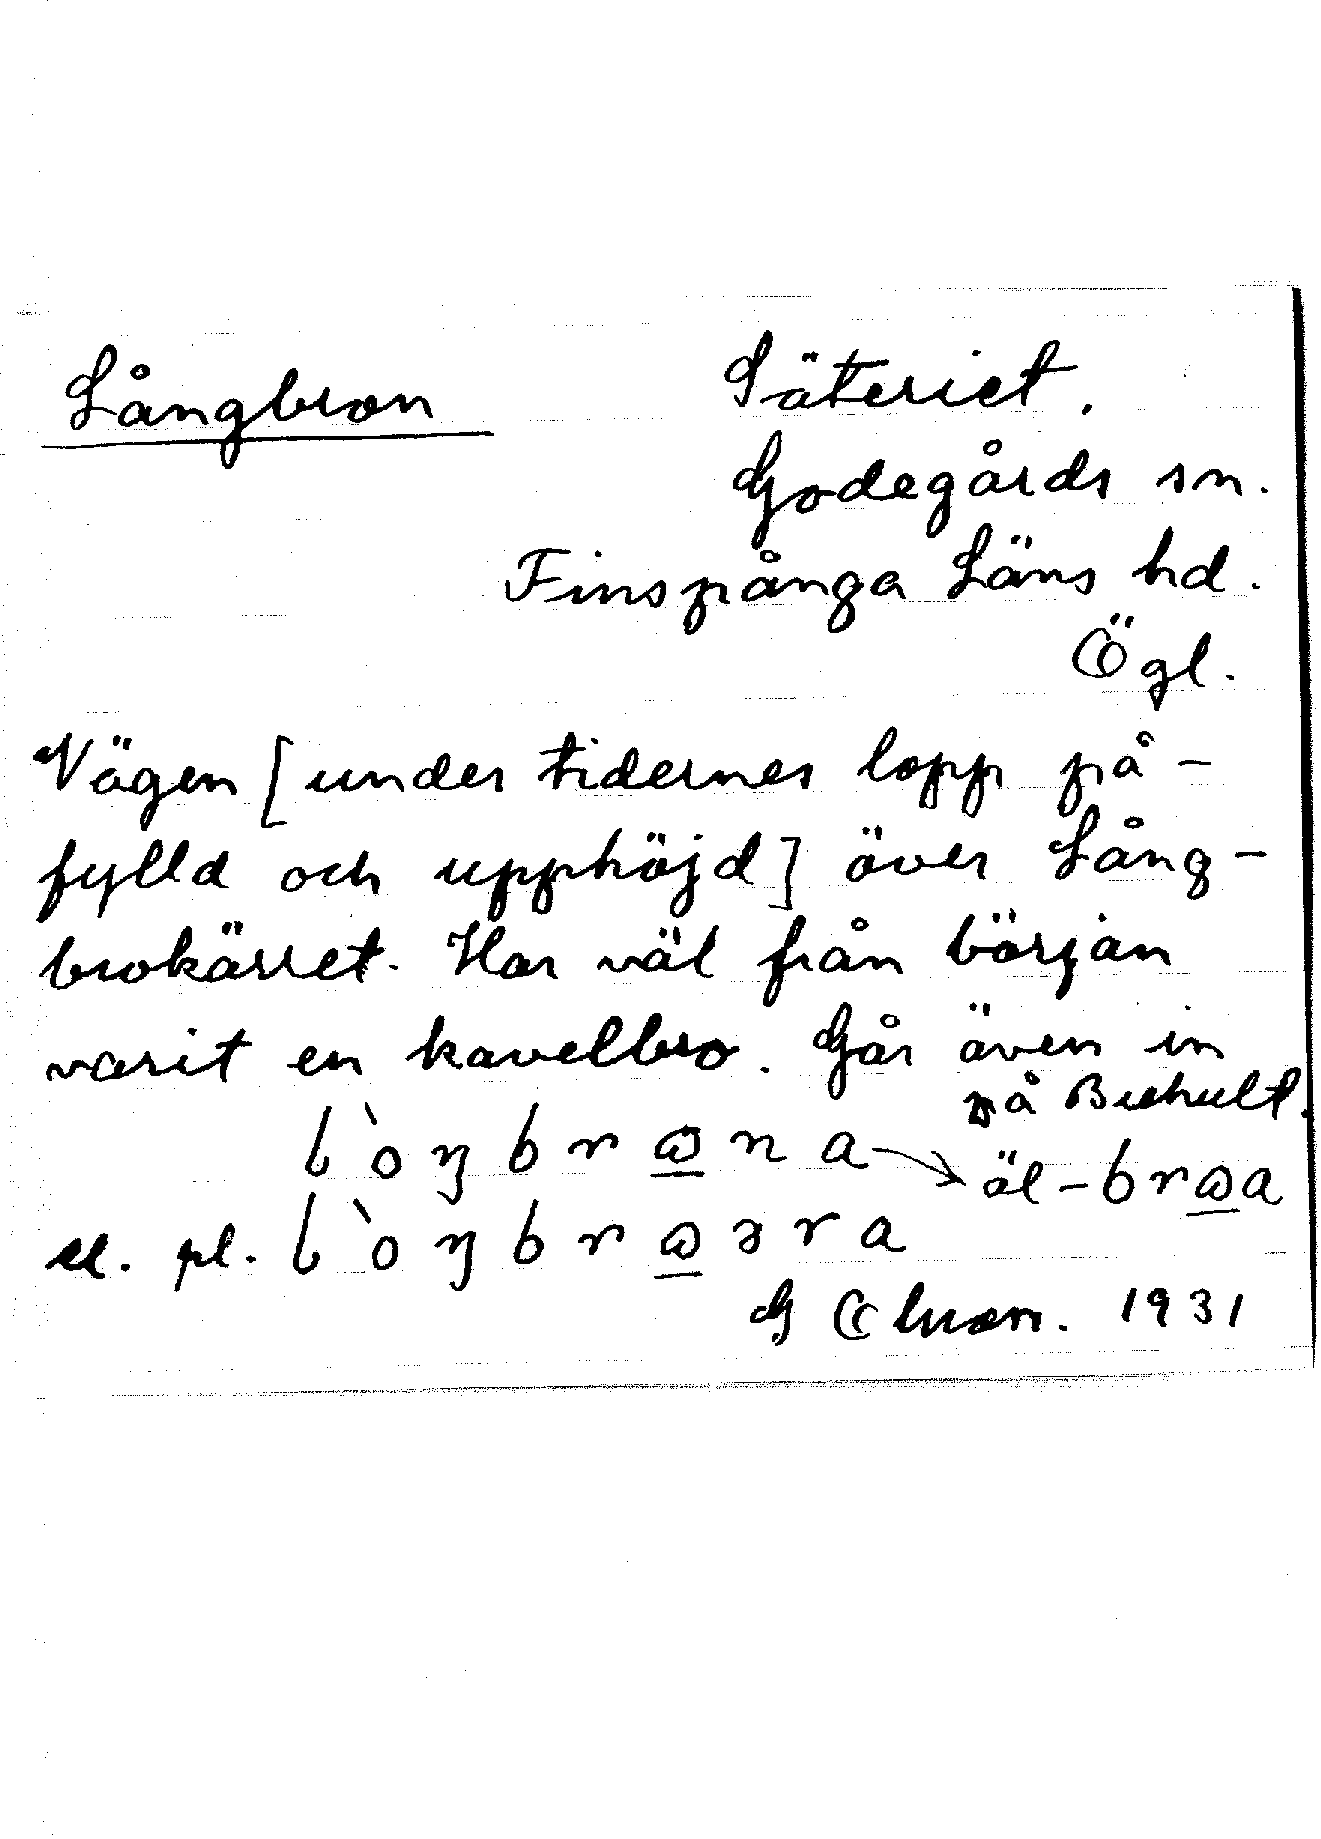 Långbron
Säteriet.
Godegårds sn.
Finspånga Läns hd.
Ögl.
Vägen [under tidernes lopp på-
fylld och upphöjd] över Lång-
brokärret. Har väl från början
varit en kavelbro. Går även in
på Brehult.
l`oŋbrꞷna → äl-brꞷa
el. pl. l`oŋbrꞷəra
1931